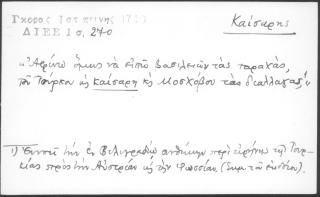 Καίσαρης
ΔΙΕΕ 1σ, 240
"Ἀφίνω ὅμως νὰ εἰπῶ βασιλειῶν τὰς ταραχάς,
τοῦ Τούρκου κὴ Καίσαρη κὴ Μοσχόβου τὰς διαλλαγάς"
1) Ἐννοεῖ τὴν ἐν Βελιγραδίῳ συνθήκην περὶ εἰρήνης τῆς Τουρ-
κίας πρὸς τὴν Αὐστρίαν κὴ τὴν Ρωσσίαν. (Σημ. τοῦ ἐκδότου).